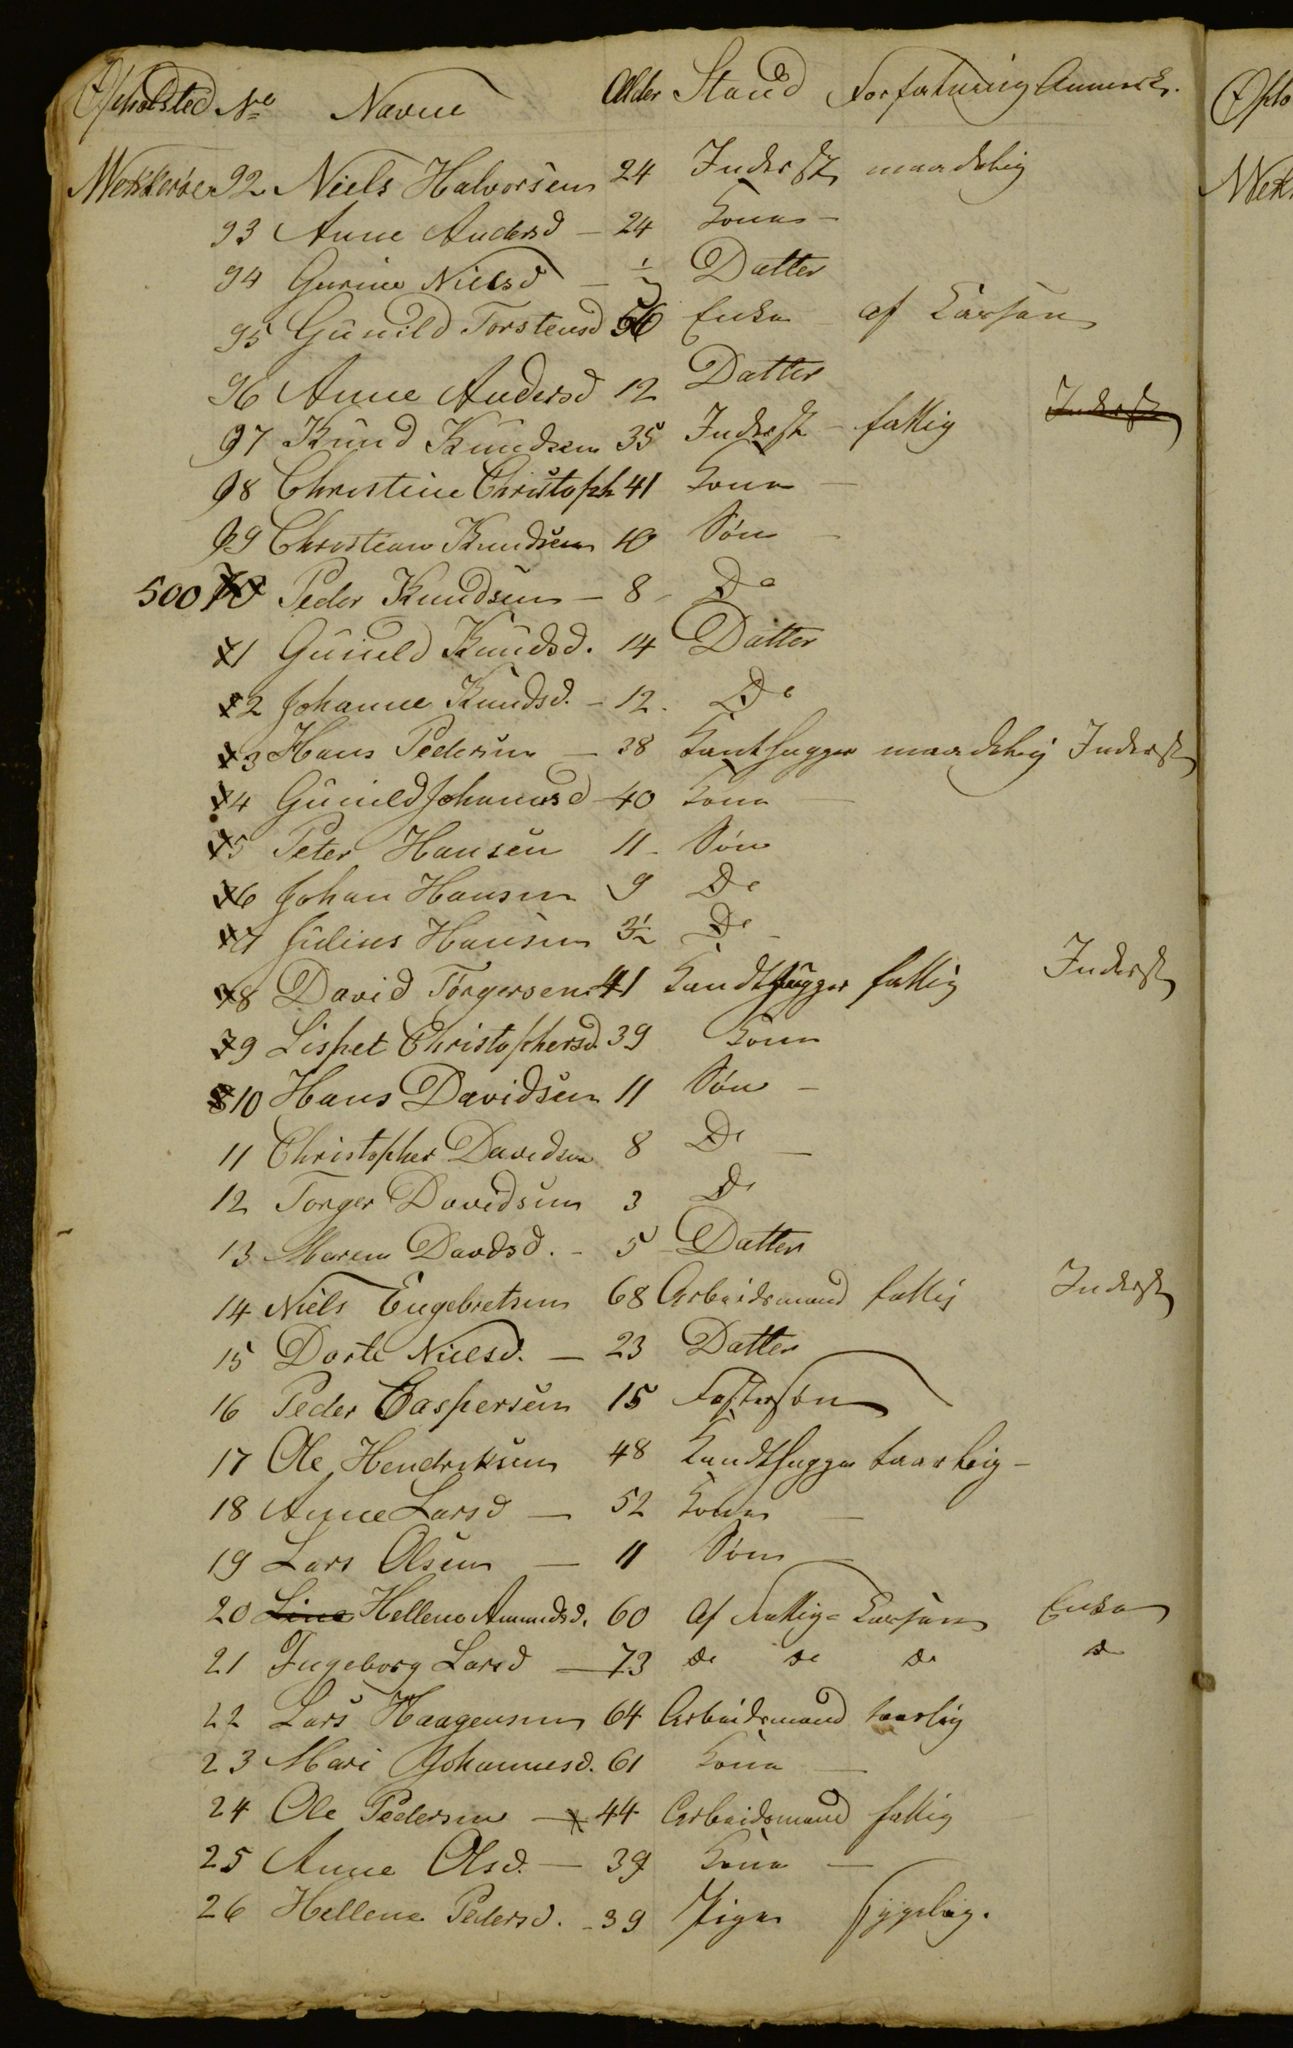 Opholsted No Navne Alder Stand Forfatning Anmerk.
Wekkerøe 92 Niels Halvorsen 24 Inderst maadelig
93 Anne Andersd - 24 Kona -
94 Gurine Nielsd - ½ Datter
95 Gunild Torstensd 56 Enke af Larsen
96 Anne Andersd 12 Datter
97 Knud Knudsen 35 Inderst - fattig Inderst
98 Christine Christoph 41 Kona -
99 Christian Knudsen 10 Søn -
500 Peder Knudsen - 8 - Do
1 Gunild Knudsd. 14 Datter
2 Johanne Knudsd. - 12. Do
3 Hans Pedersen - 38 Kanthugger maadelig Inderst
4 Gunild Johannesd - 40 Kona -
5 Peter Hansen 11 - Søn
6 Johan Hansen 9 Do
7 Julius Hansen 3½ Do -
8 David Torgersen 41 Kandthugger fattig Inderst
9 Lisbet Christophersd. 39 Kona
10 Hans Davidsen 11 Søn -
11 Christopher Davidsen 8 Do -
12 Torger Davidsen 3 Do
13 Maren Davdsd. - 5 Datter
14 Niels Engebretsen 68 Arbeidsmand fattig Inderst
15 Dorte Nielsd. - 23 Datter
16 Peder Caspersen 15 Fostersøn
17 Ole Hendriksen 48 Kandthugger taarlig -
18 Anne Larsd - 52 Kona -
19 Lars Olsen - 11 Søn -
20 Line Hellene Amundsd. 60 af Fattig= Enke
21 Ingeborg Larsd - 73 do do do do
22 Lars Haagensen 64 Arbeidsmand taarlig
23 Mari Johannesd. 61 Kona -
24 Ole Pedersen - 44 Arbeidsmand fattig
25 Anne Olsd. - 39 Kona -
26 Hellene Pedersd. - 39 Pige sygelig.
Opho
Wek